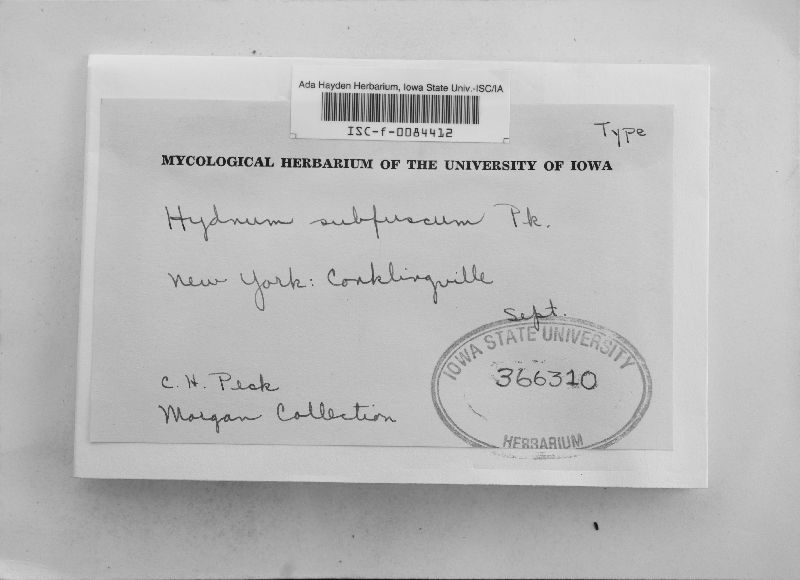 Ada Hayden Herbarium, Iowa State Univ.-ISC/IA
ISC-f-0084412
Type
MYCOLOGICAL HERBARIUM OF THE UNIVERSITY OF IOWA
Hydnum subfuscum Pk.
New York: Conklingville
Sept.
IOWA STATE UNIVERSITY
366310
HERBARIUM
C. H. Peck
Morgan Collection